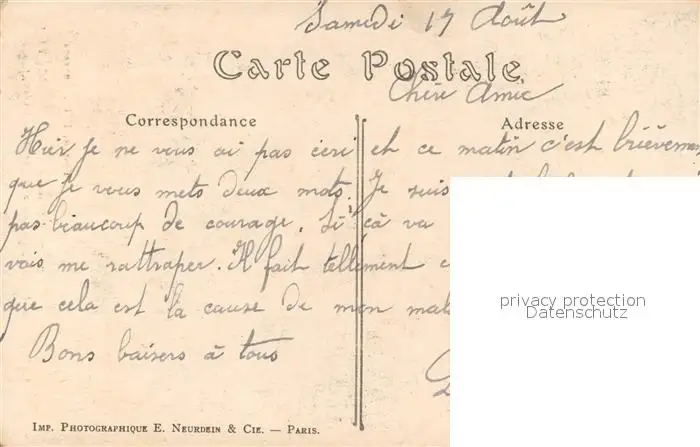 Samedi 17 Août
Carte Postale
Chère Amie
Correspondance Adresse
Hier je ne vous ai pas écri et ce matin c'est brièvemen
que je vous mets deux mots. Je suis
pas beaucoup de courage. Si ça va
vais me rattraper. Il fait tellement
que cela est la cause de mon mal
Bons baisers à tous
privacy protection
Datenschutz
IMP. PHOTOGRAPHIQUE E. NEURDEIN & CIE. — PARIS.